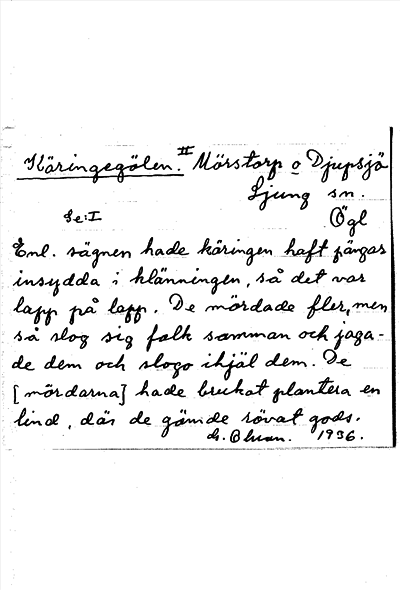 Käringegölen. II Mörstorp o Djupsjö
Ljung sn.
Se: I
Ögl
Enl. sägnen hade käringen haft pängar
insydda i klänningen, så det var
lapp på lapp. De mördade fler, men
så slog sig folk samman och jaga-
de dem och slogo ihjäl dem. De
[mördarna] hade brukat plantera en
lind, där de gömde rövat gods.
1936.